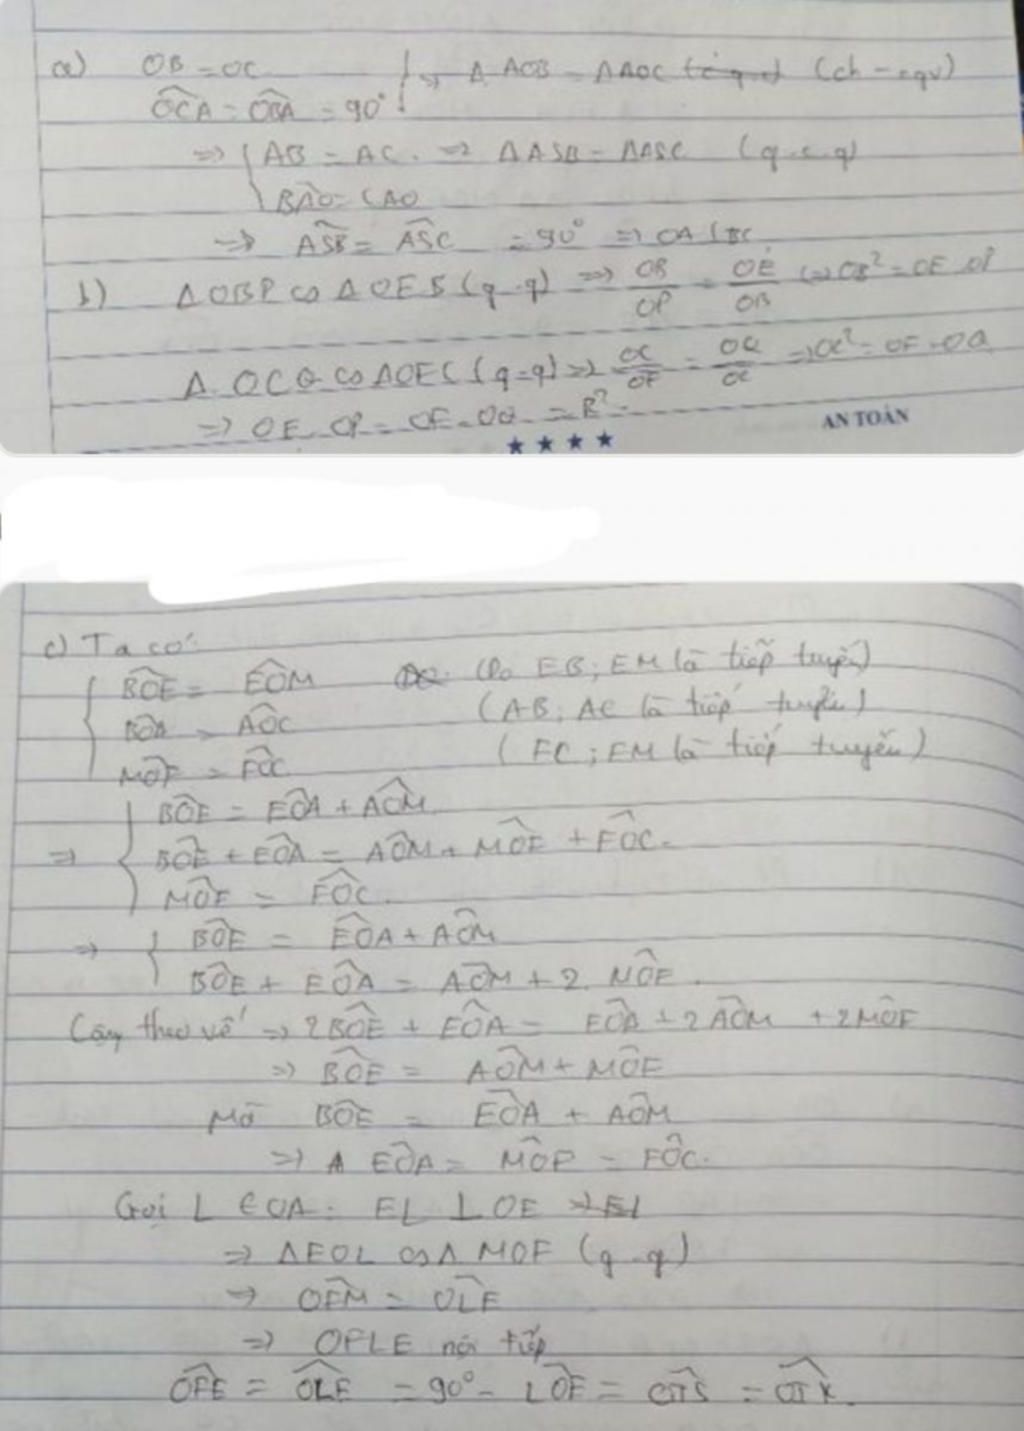 a) OB = OC
OCA = OBA = 90° } => Δ AOB = ΔAOC (ch - cgv)
=> { AB = AC. => ΔASB = ΔASC (g.c.g)
BAO = CAO
=> ASB = ASC = 90° => OA ⊥ BC
b) ΔOBP ∽ ΔOEB (g.g) => OB/OP = OE/OB => OB² = OE.OP
Δ OCQ ∽ ΔOFC (g-g) => OC/OF = OQ/OC => OC² = OF.OQ
=> OE.OP = OF.OQ = R².
AN TOÀN
c) Ta có:
BOE = EOM (Do EB; EM là tiếp tuyến)
BOA = AOC (AB; AC là tiếp tuyến)
MOF = FOC (FC; FM là tiếp tuyến)
=> { BOE = EOA + AOM
BOE + EOA = AOM + MOF + FOC.
MOF = FOC.
=> { BOE = EOA + AOM
BOE + EOA = AOM + 2. MOF.
Cộng theo vế => 2BOE + EOA = EOA + 2AOM + 2MOF
=> BOE = AOM + MOF
Mà BOE = EOA + AOM
=> EOA = MOF = FOC.
Gọi L ∈ OA: EL ⊥ OE
=> ΔEOL ∽ Δ MOF (g.g)
=> OFM = OLE
=> OFLE nội tiếp
OFE = OLE = 90° - LOE =